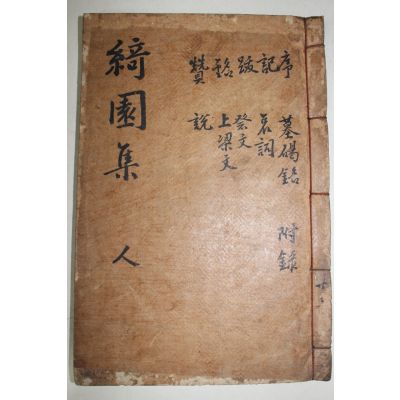 綺園集 人
序 墓碣銘 附錄
記 哀詞
跋 祭文
銘 上梁文
贊 說